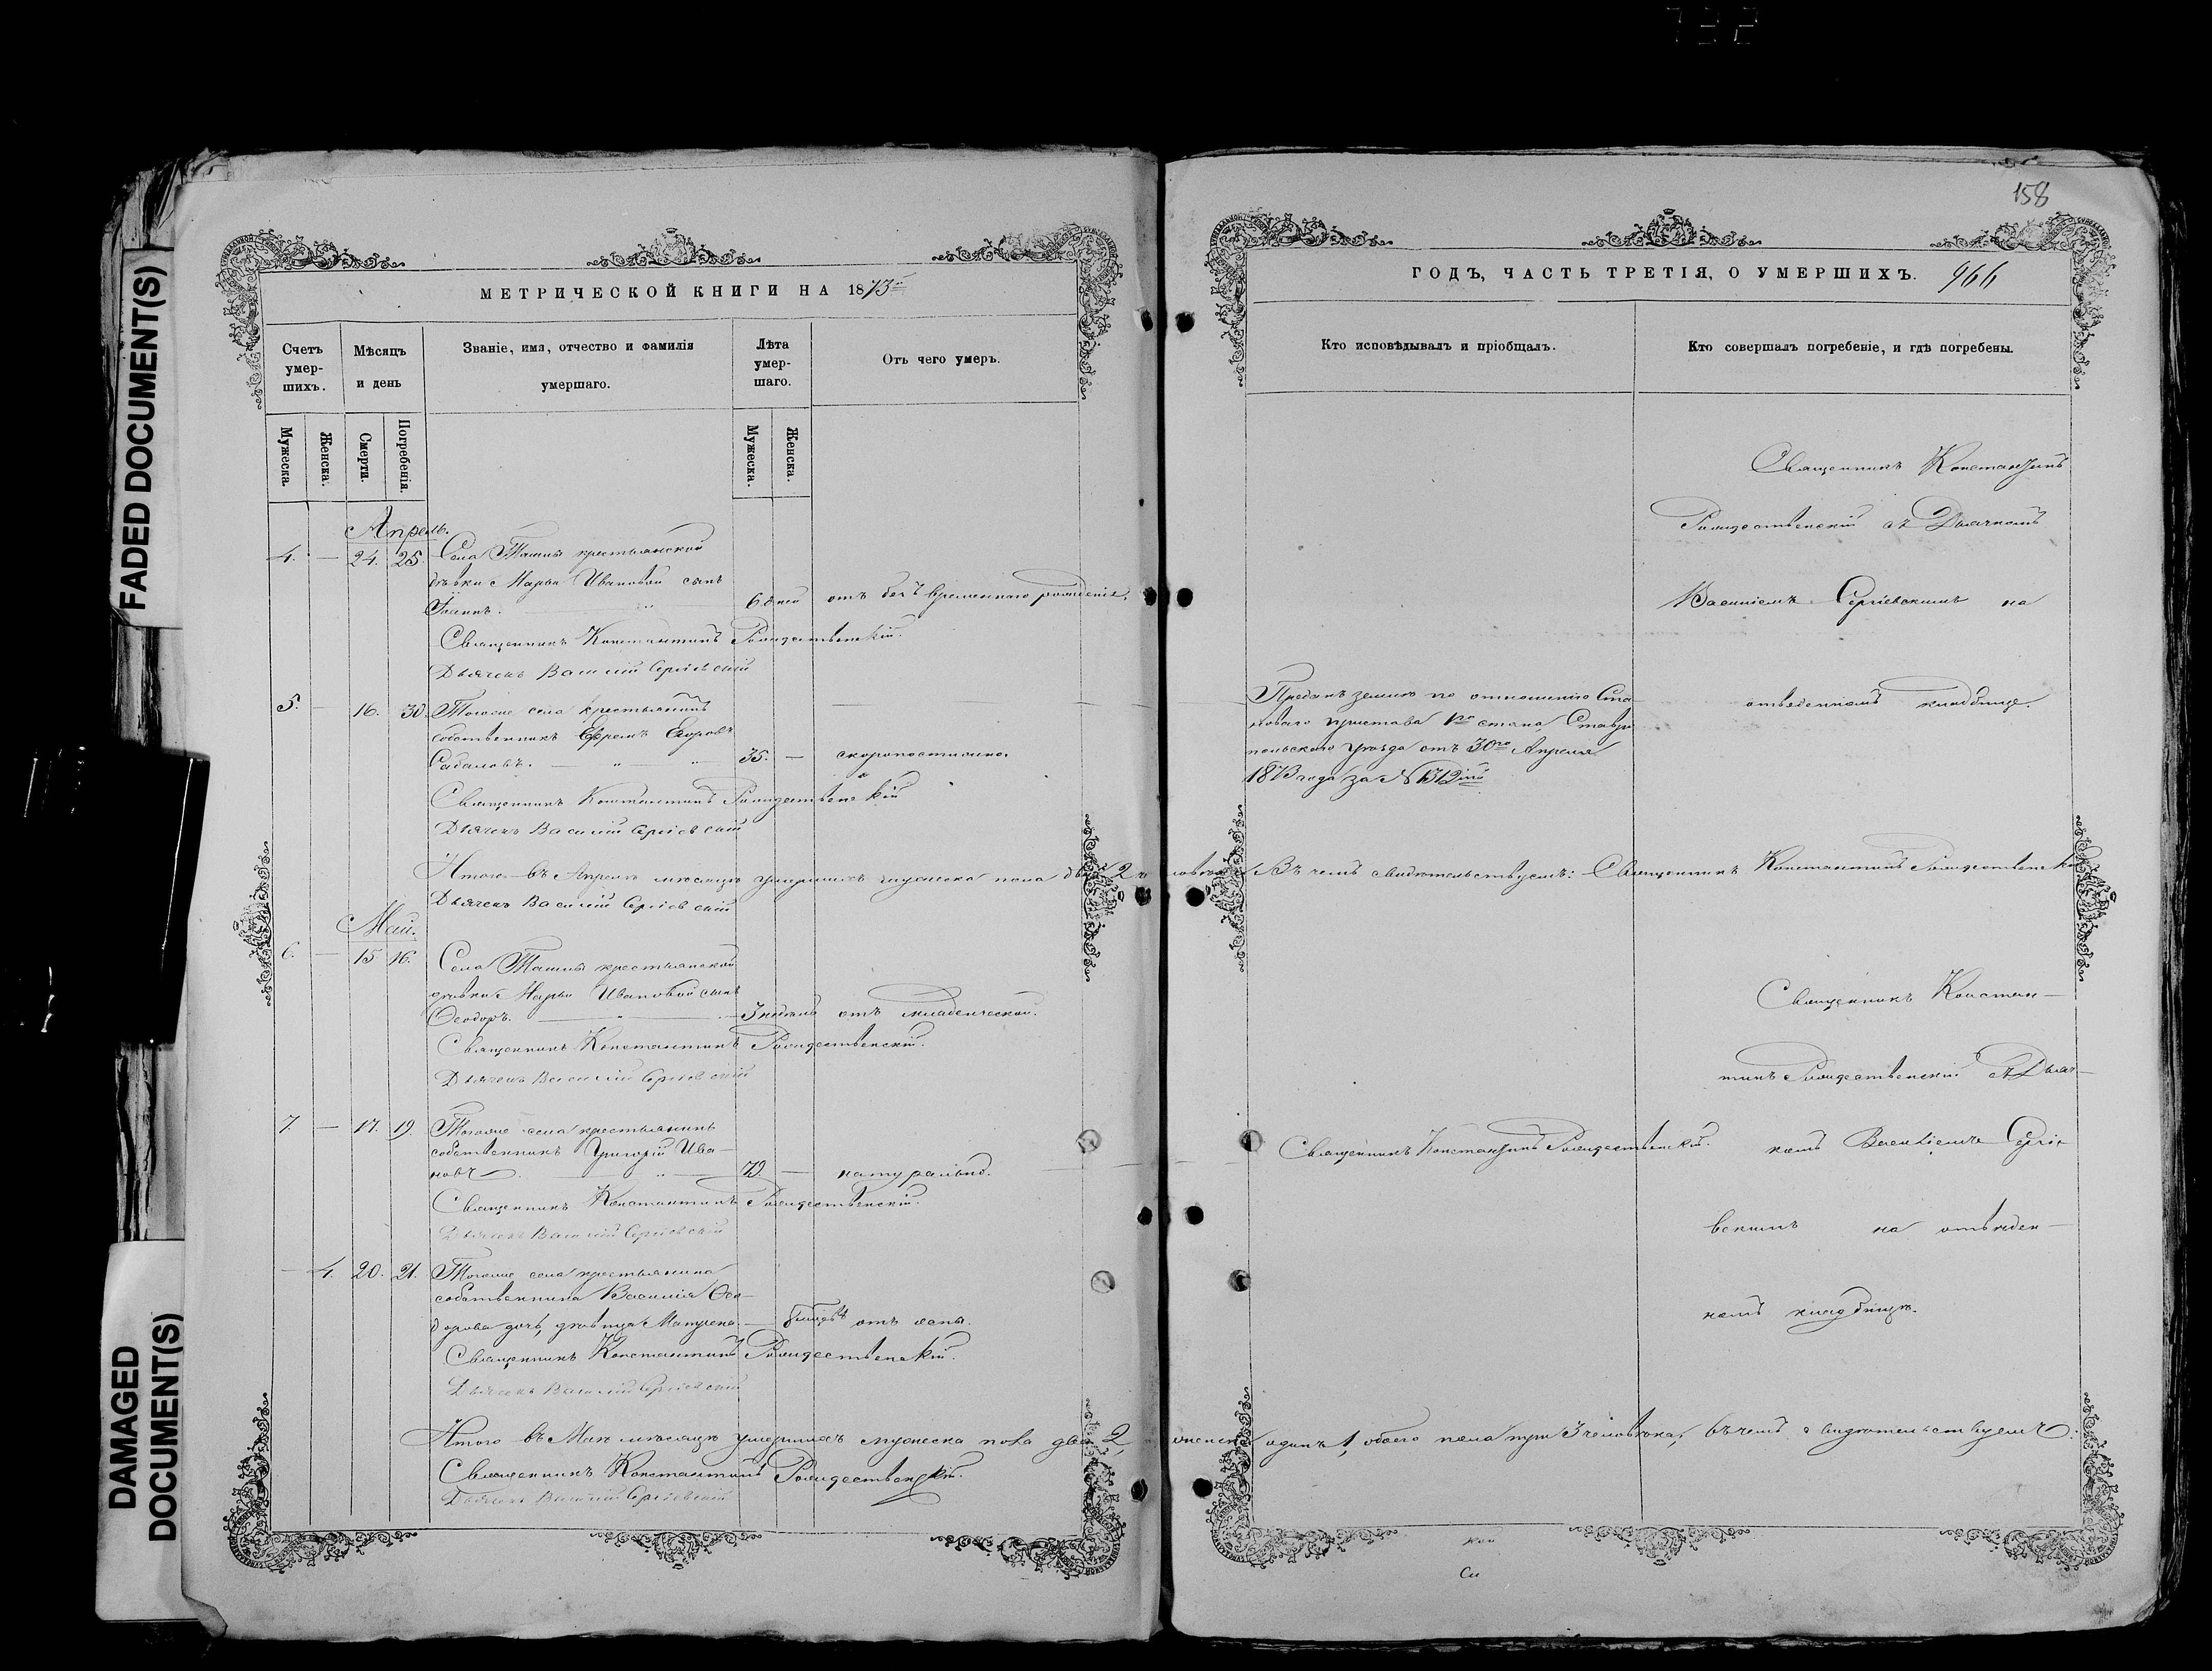 FADED DOCUMENT(S)
DAMAGED
DOCUMENT(S)
МЕТРИЧЕСКОЙ КНИГИ НА 1873й
Счетъ умер-шихъ.
Мѣсяцъ и день
Званіе, имя, отчество и фамилія умершаго.
Лѣта умер-шаго.
Отъ чего умеръ.
Мужеска.
Женска.
Смерти.
Погребенія.
Мужеска.
Женска.
Апрель.
4. — 24. 25. Села Ташлы крестьянской
дѣвки Марьи Ивановой сынъ
Іоаннъ. 6 дней отъ безъ временнаго рожденія.
Священникъ Константинъ Рождественскій.
Дьячекъ Василій Сергіевскій
5. — 16. 30. Тогоже села крестьянинъ
собственникъ Ефремъ Егоровъ
35. — скоропостижно.
Священникъ Константинъ Рождественскій
Дьячекъ Василій Сергіевскій
Итого въ Апрелѣ мѣсяцѣ умершихъ мужеска пола два 2 человѣка. Въ чемъ свидѣтельствуемъ: Священникъ Константинъ Рождественскій
Дьячекъ Василій Сергіевскій
Май.
6. — 15 16. Села Ташлы крестьянской
дѣвки Марьи Ивановой сынъ
Ѳеодоръ. 3 недѣль отъ младенческой.
Священникъ Константинъ Рождественскій.
Дьячекъ Василій Сергіевскій
7. — 17. 19. Тогоже села крестьянинъ
собственникъ Григорій Ива-
новъ. — натурально.
Священникъ Константинъ Рождественскій.
Дьячекъ Василій Сергіевскій
— 4. 20. 21. Тогоже села крестьянина
собственника Василія Ѳео-
дорова дочь, дѣвица Матрена — отъ оспы.
Священникъ Константинъ Рождественскій.
Дьячекъ Василій Сергіевскій
Итого въ Маѣ мѣсяцѣ умершихъ мужеска пола два 2, женска одинъ 1, обоего пола три 3 человѣка, въ чемъ свидѣтельствуемъ.
Священникъ Константинъ Рождественскій.
Дьячекъ Василій Сергіевскій
158
ГОДЪ, ЧАСТЬ ТРЕТІЯ, О УМЕРШИХЪ. 966
Кто исповѣдывалъ и пріобщалъ.
Кто совершалъ погребеніе, и гдѣ погребены.
Священникъ Константинъ
Рождественскій съ Дьячкомъ
Василіемъ Сергіевскимъ на
отведенномъ кладбище.
Преданъ землѣ по отношенію Ста-
новаго пристава 1го стана, Ставро-
польскаго уѣзда отъ 30го Апреля
1873 года за №
Священникъ Констан-
тинъ Рождественскій съ Дьяч-
комъ Василіемъ Сергіе-
вскимъ на отведен-
номъ кладбищѣ.
Священникъ Константинъ Рождественскій.